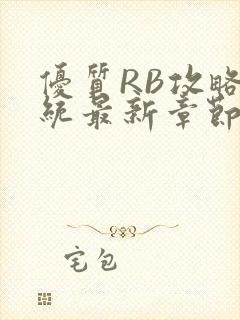 優質RB攻略
統最新章節
宅包